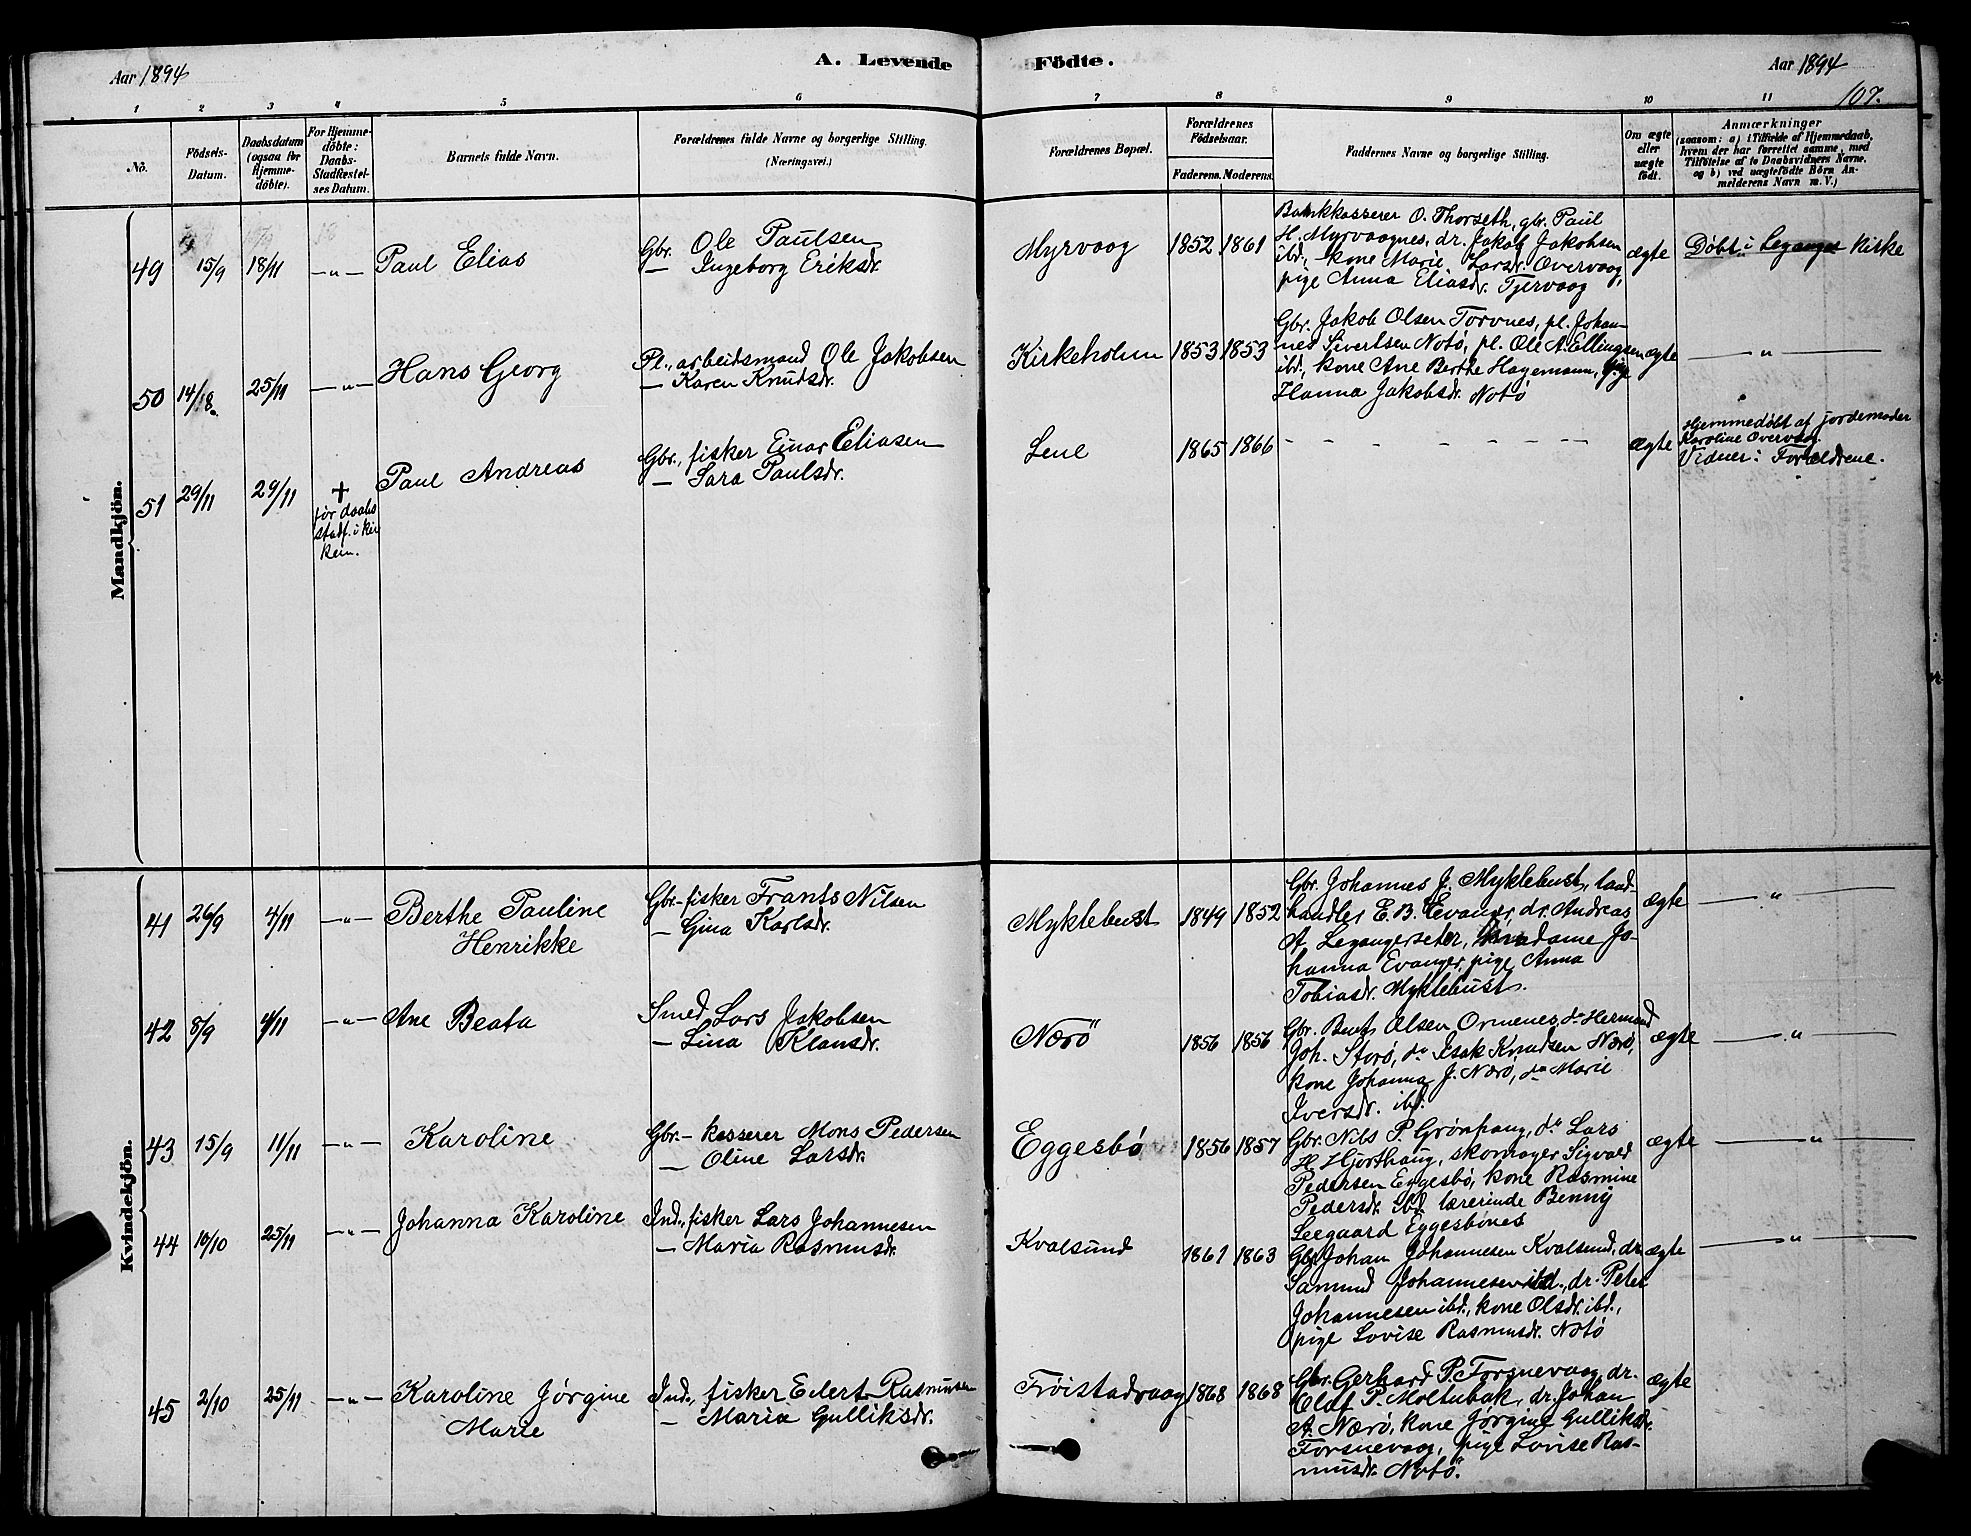 Aar 1894
A. Levende
Födte.
Aar 1894
107.
1 2 3 4 5 6 7 8 9 10 11
No.
Födsels-
Datum.
Daabsdatum
(ogsaa for
Hjemme-
döbte).
For Hjemme-
döbte:
Daabs-
Stadfæstel-
ses Datum.
Barnets fulde Navn.
Forældrenes fulde Navne og borgerlige Stilling.
(Næringsvei.)
Forældrenes Bopæl.
Forældrenes
Födselsaar.
Faderens. Moderens.
Faddernes Navne og borgerlige Stilling.
Om ægte
eller
uægte
födt.
Anmærkninger
(saasom: a) i Tilfælde af Hjemmedaab,
hvem der har forrettet samme, med
Tilföielse af to Daabsvidners Navne,
og b) ved uægtefödte Börn An-
melderens Navn m. V.)
Mandkjön.
49 15/9 18/11 — " — Paul Elias
Gbr. Ole Paulsen
— Ingeborg Eriksdr.
Myrvaag 1852 1861
Bankkasserer O. Thorseth, gbr. Paul
H. Myrvaagnes, dr. Jakob Jakobsen
ibd., kone Marie Larsdr. Overvaag,
pige Anna Eliasdr. Tjervaag
ægte
Döbt i Leganger Kirke
50 14/8. 25/11 — " — Hans Georg
Pl., arbeidsmand Ole Jakobsen
— Karen Knudsdr.
Kirkeholm 1853 1853
Gbr. Jakob Olsen Torvnes, pl. Johan-
nes Sivertsen Notö, pl. Ole A. Ellingsen
ibd., kone Ane Berthe Hagemann, pige
Hanna Jakobsdr. Notö
ægte — " —
51 29/11 29/11
†
før daabs
stadf. i kir
ken.
Paul Andreas
Gbr., fisker Einar Eliasen
— Sara Paulsdr.
Lene 1865 1866 - - - - - - - -
ægte
Hjemmedöbt af jordemoder
Karoline Overvaag.
Vidner: Forældrene.
Kvindekjön.
41 26/9 4/11 — " — Berthe Pauline
Henrikke
Gbr.-fisker Frants Nilsen
— Gina Karlsdr.
Myklebust 1849 1852
Gbr. Johannes J. Myklebust, land-
handler E. B. Evanger, dr. Andreas
A. Legangerseter, madame Jo-
hanna Evanger, pige Anna
Tobiasdr. Myklebust.
ægte — " —
42 8/9 4/11 — " — Ane Beata
Smed Lars Jakobsen
— Lina Klausdr.
Nærö 1856 1856
Gbr. Bent Olsen Ormenes, do Hermand
Joh. Storö, do Isak Knudsen Nærö,
kone Johanna J. Nærö, do Marie
Iversdr. ibd.
ægte — " —
43 15/9 11/11 — " — Karoline
Gbr.- kasserer Mons Pedersen
— Oline Larsdr.
Eggesbö 1856 1857
Gbr. Nils P. Grönhaug, do Lars
H. Hjorthaug, skomager Sigvald
Pedersen Eggesbö, kone Rasmine
Pedersdr. ibd, lærerinde Benny
Leegaard Eggesbönes
ægte — " —
44 10/10 25/11 — " — Johanna Karoline
Ind., fisker Lars Johannesen
— Maria Rasmusdr.
Kvalsund 1861 1863
Gbr. Johan Johannesen Kvalsund, dr.
Samund Johannesen ibd., dr. Peter
Johannesen ibd., kone Olsdr. ibd.,
pige Lovise Rasmusdr. Notö
ægte — " —
45 2/10 25/11 — " — Karoline Jörgine
Marie
Ind., fisker Edert Rasmusen
— Maria Gulliksdr.
Fröistadvaag 1868 1868
Gbr. Gerhard P. Torsnevaag, dr.
Oldf P. Moltubak, dr. Johan
A. Nærö, kone Jörgine Gulliksdr.
Torsnevaag, pige Lovise Ras-
musdr. Notö.
ægte